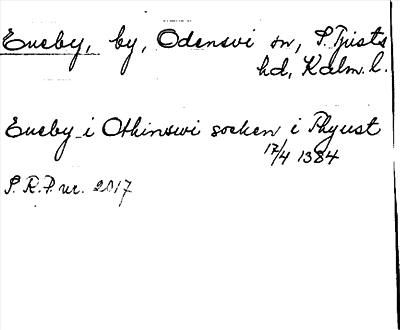 Eneby, by, Odensvi sn, S. Tjusts
hd, Kalm. l.
Eneby i Othinswi socken i Thyust
17/4 1384
S.R.P. nr. 2017